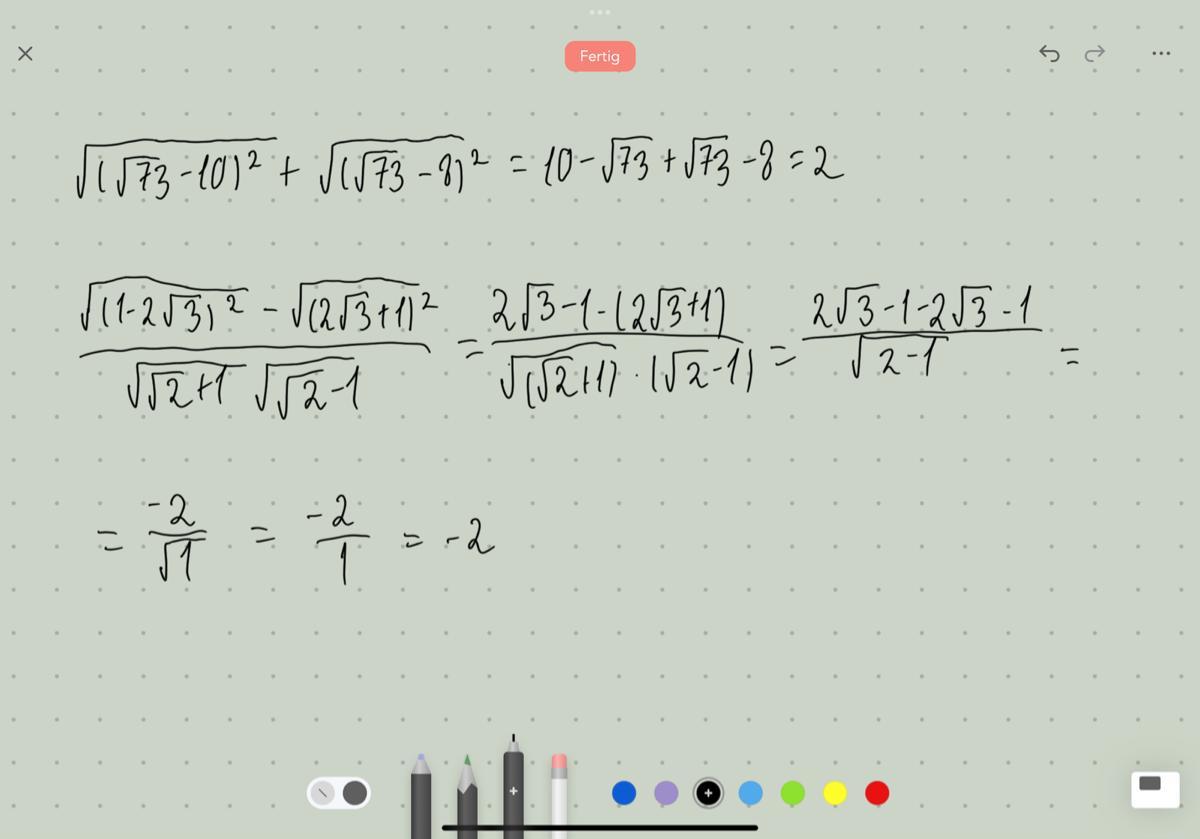 Fertig
√(√73 - 10)² + √(√73 - 8)² = 10 - √73 + √73 - 8 = 2
(√(1-2√3)² - √(2√3+1)²) / (√(√2+1) √(√2-1)) = (2√3 - 1 - (2√3+1)) / √((√2+1) · (√2-1)) = (2√3 - 1 - 2√3 - 1) / √(2-1) =
= -2/√1 = -2/1 = -2